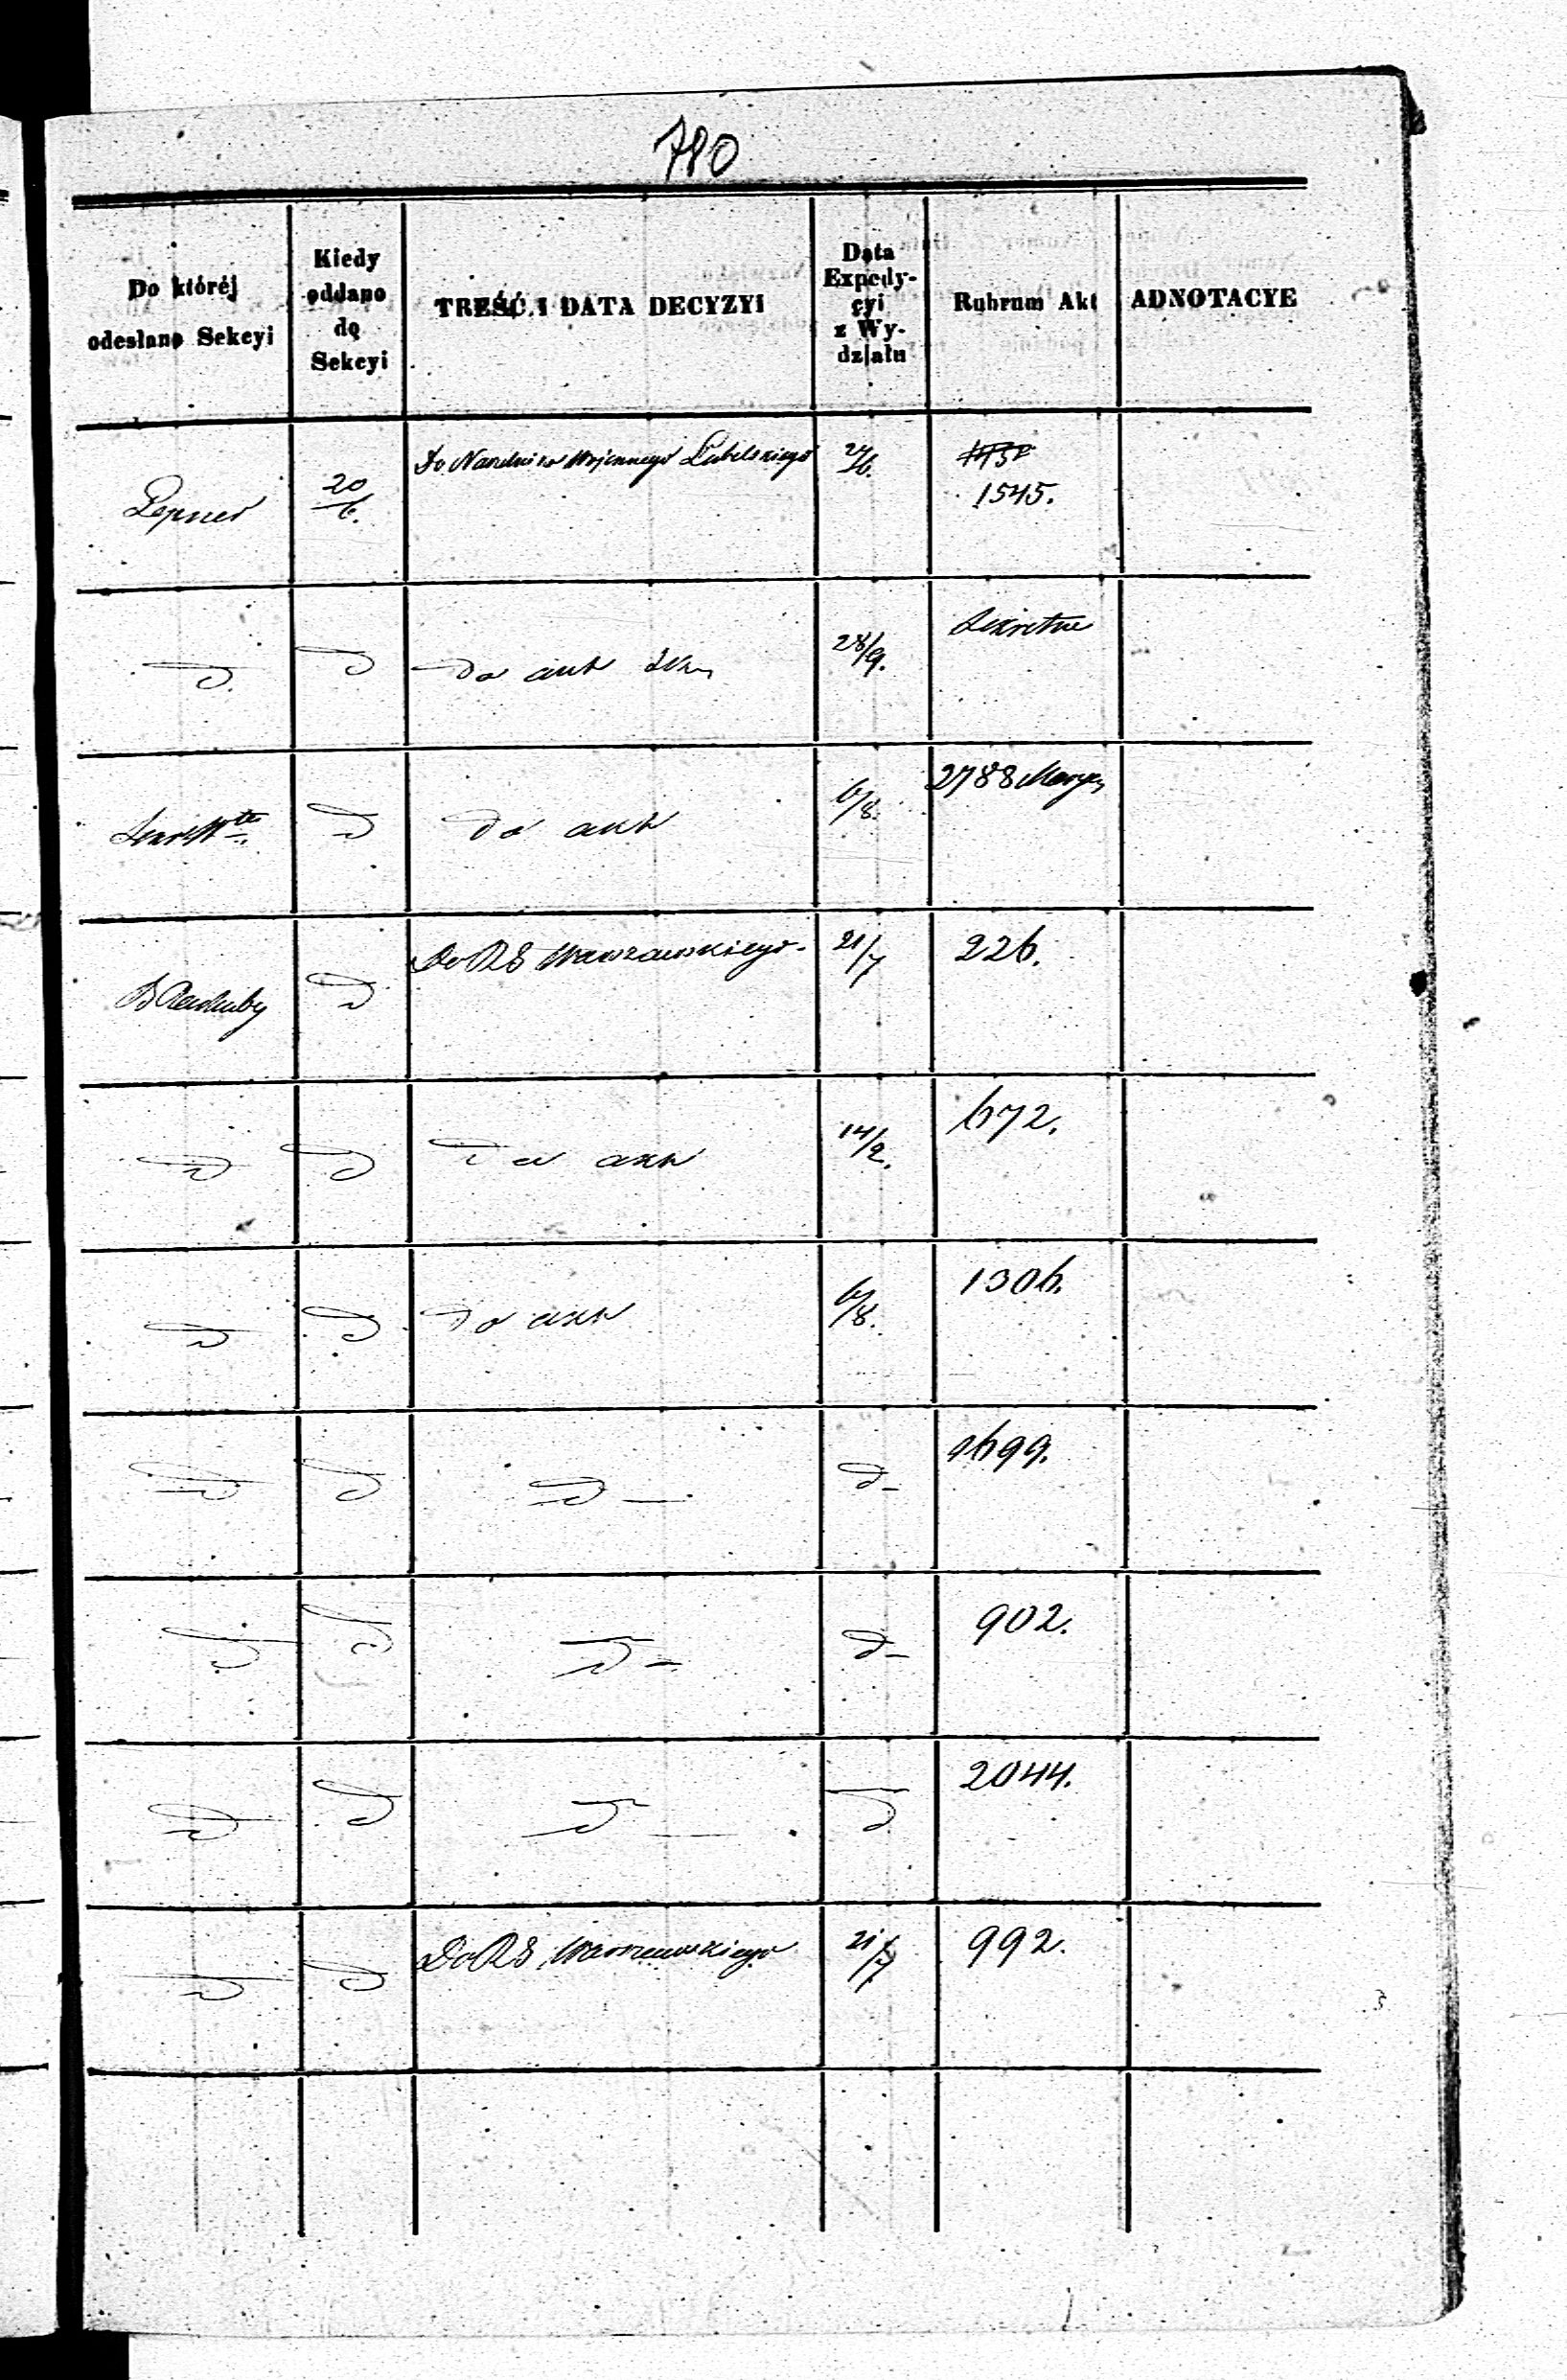 780
Do któréj odesłano Sekcyi
Kiedy oddano do Sekcyi
TREŚĆ I DATA DECYZYI
Data Expedycyi z Wydziału
Rubrum Akt
ADNOTACYE
20/6.
Do Naczelnika Wojennego Lubelskiego
1545.
d d do akt
28/9.
Sekretne
d do akt
6/8.
2788
d
Do RG Warszawskiego
21/7
226.
d d do akt
14/2.
672.
d d do akt
6/8.
1306.
d d d d
1699.
d d d d
902.
d d d d
2044.
d d
Do RG Warszawskiego
21/7
992.